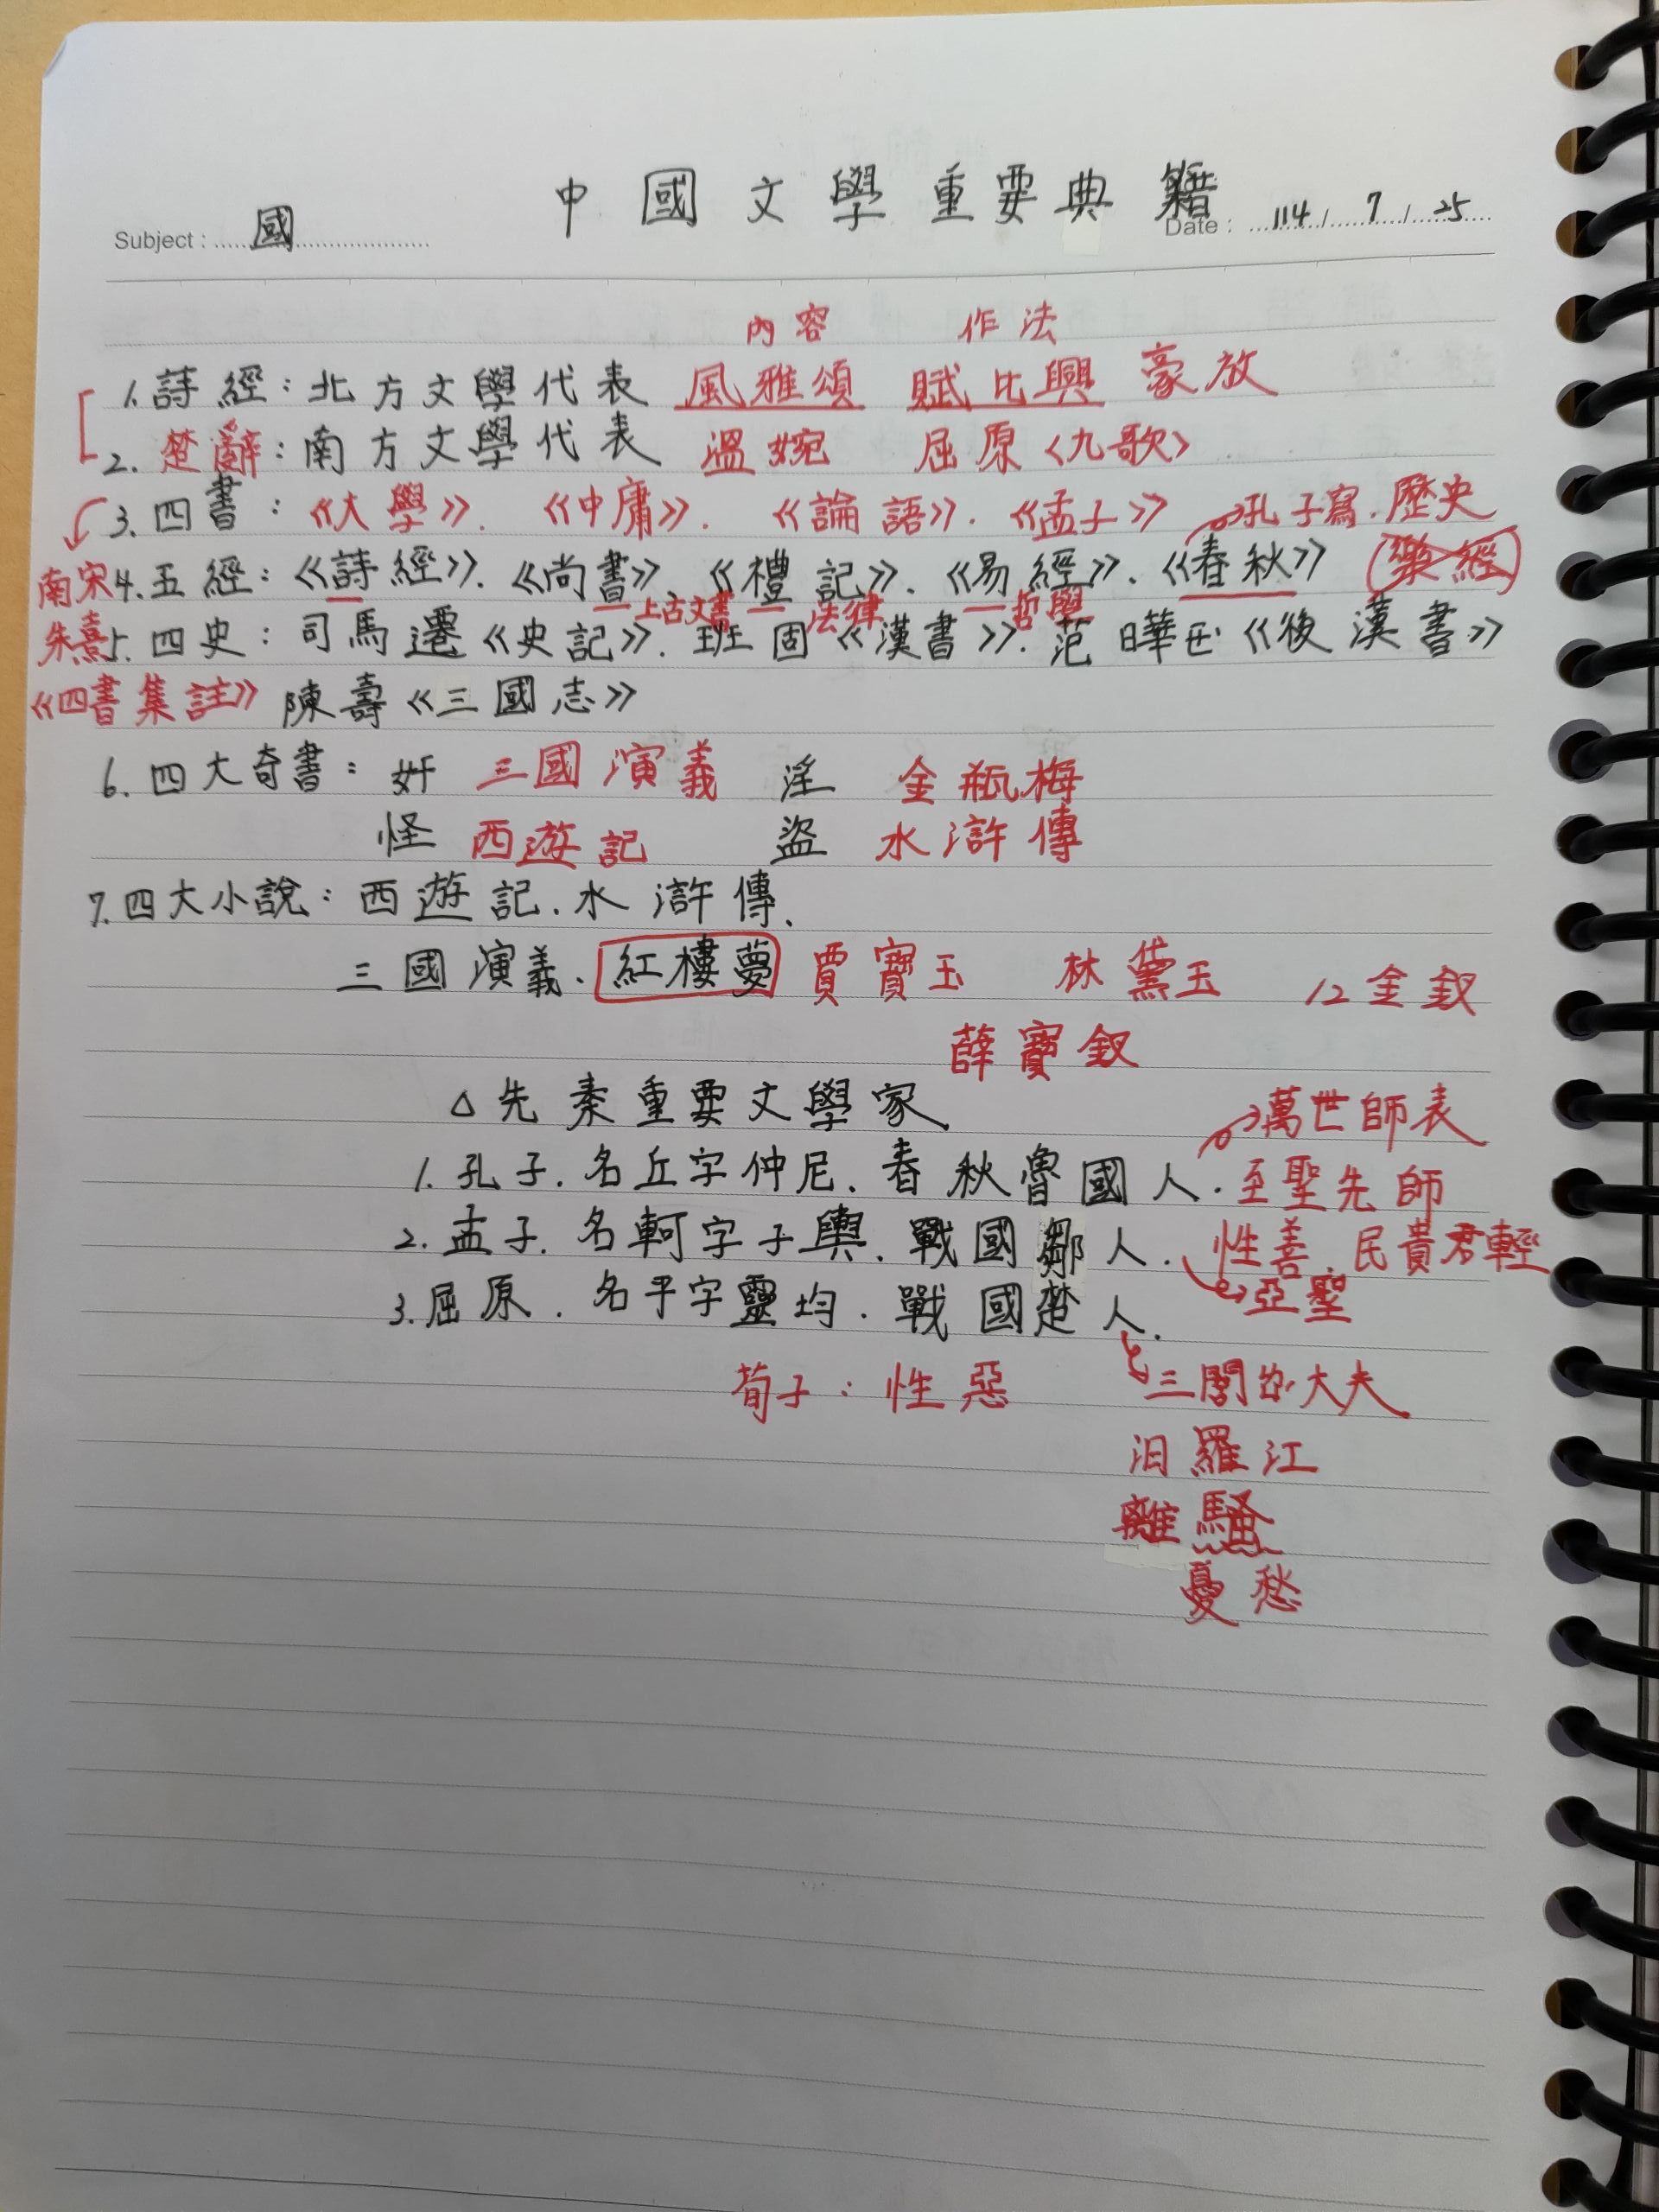 中國文學重要典籍
Subject : 國 Date : 114 / 7 / 25
內容 作法
1. 詩經：北方文學代表 風雅頌 賦比興 豪放
2. 楚辭：南方文學代表 溫婉 屈原〈九歌〉
3. 四書：《大學》.《中庸》.《論語》.《孟子》 孔子寫.歷史
南宋 4. 五經：《詩經》.《尚書》.《禮記》.《易經》.《春秋》 樂經
上古文書 法律 哲學
朱熹 5. 四史：司馬遷《史記》.班固《漢書》.范曄ㄧㄝˋ《後漢書》
《四書集註》 陳壽《三國志》
6. 四大奇書：奸 三國演義 淫 金瓶梅
怪 西遊記 盜 水滸傳
7. 四大小說：西遊記.水滸傳.
三國演義.紅樓夢 賈寶玉 林黛玉 12金釵
薛寶釵
△先秦重要文學家 萬世師表
1. 孔子.名丘字仲尼.春秋魯國人.至聖先師
2. 孟子.名軻字子輿.戰國鄒人.性善 民貴君輕
亞聖
3. 屈原.名平字靈均.戰國楚人.
荀子：性惡 三閭ㄌㄩˊ大夫
汨羅江
離騷
憂愁